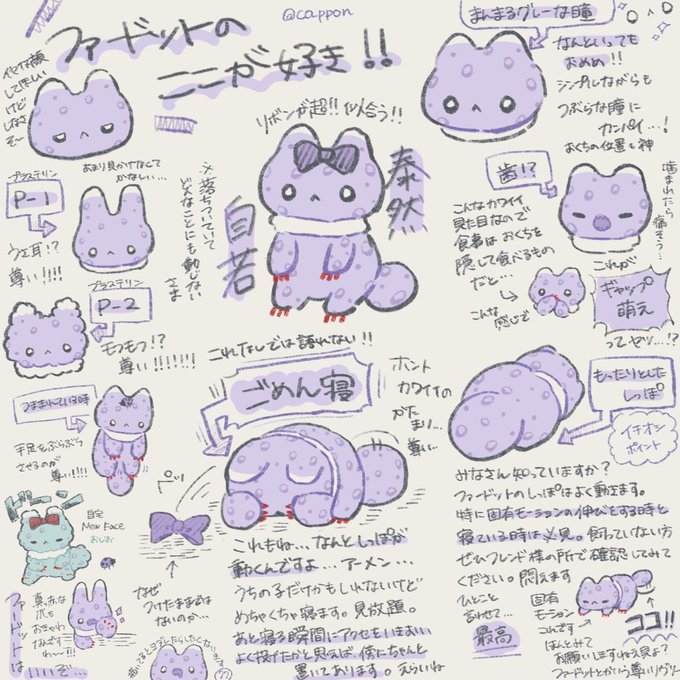 @cappon
ファードットの
ここが好き!!
してほしい
けど
しなさ
そ〜
リボンが超!!似合う!!
泰然
自若
※落ちついていて
どんなことにも動じない
さま
まんまるグレーな瞳
なんといっても
おめめ!!
シンプルながらも
つぶらな瞳に
カンパイ…!
おくちの位置も神
あまり見かけなくて
かなしい…
プラステリン
P-1
うさ耳!?
尊い!!!!
プラステリン
P-2
モフモフ!?
尊い!!!!!!!
歯!?
噛まれたら
痛そう…
こんなカワイイ
見た目なので
食事は おくちを
隠して食べるもの
だと…
こんな
感じで
これが
ギャップ
萌え
ってヤツ…!?
つままれている時
手足をぷらぷら
させるのが
尊い!!!
これなしでは語れない!!
ごめん寝
ホント
カワイイの
かた
まり…
尊い…
もったりとした
しっぽ
イチオシ
ポイント
みなさん知っていますか?
ファードットのしっぽはよく動きます。
特に固有モーションの伸びをする時と
寝ている時は必見。飼っていない方
ぜひフレンド様の所で確認してみて
ください。悶えます
ひとこと
言わせて…
最高
固有
モーション
これです
ほんとみて
お願いしますねえ見よ?
ファードットとかいう尊いリヴリー
ココ!!
New Face
なぜ
つけたままでは
ないのか…
これもね…なんとしっぽが
動くんですよ…アーメン…
うちの子だけかもしれないけど
めちゃくちゃ寝ます。見放題。
あと寝る瞬間にアクセをいきおい
よく投げたかと思えば、傍にちゃんと
置いてあります。えらいね
真っ赤な
爪も
おきゃわ
なんです
わ〜!!!
ファードットは
いいぞ…